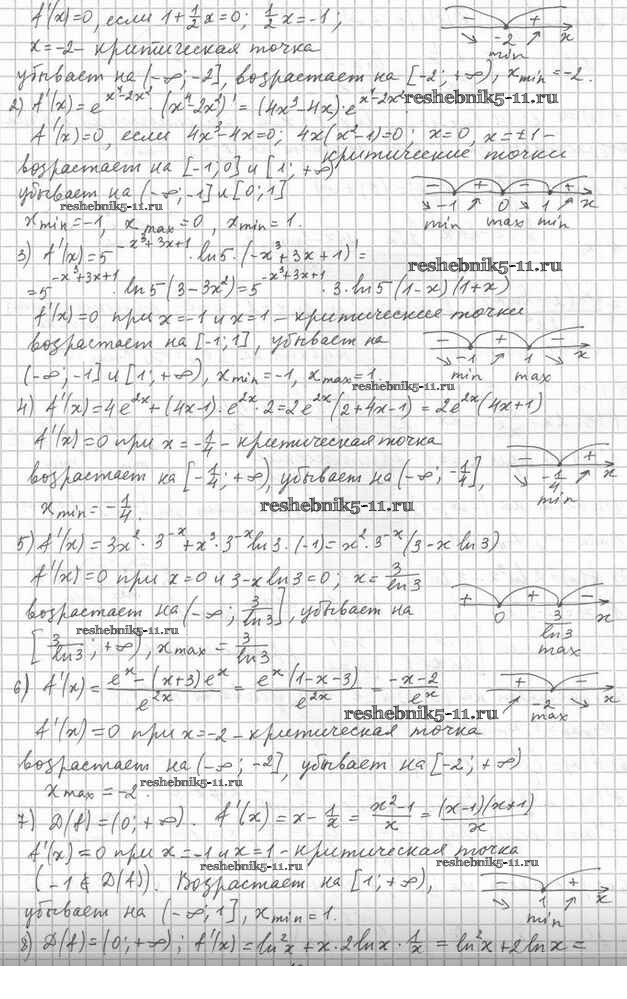 f'(x)=0, если 1+½x=0; ½x=-1;
x=-2- критическая точка
- + -2 min x
убывает на (-∞;-2], возрастает на [-2;+∞), x min=-2.
2) f'(x)=e^{x⁴-2x²}·(x⁴-2x²)'=(4x³-4x)·e^{x⁴-2x²}.
reshebnik5-11.ru
f'(x)=0, если 4x³-4x=0; 4x(x²-1)=0; x=0, x=±1-
критические точки
возрастает на [-1;0] и [1;+∞)
убывает на (-∞;-1] и [0;1]
- + - + -1 0 1 x
min max min
reshebnik5-11.ru
x min=-1, x max=0, x min=1.
3) f'(x)=5^{-x³+3x+1}·ln5·(-x³+3x+1)'=
reshebnik5-11.ru
=5^{-x³+3x+1}·ln5(3-3x²)=5^{-x³+3x+1}·3·ln5(1-x)(1+x)
f'(x)=0 при x=-1 и x=1-критические точки
возрастает на [-1;1], убывает на
- + - -1 1 x
min max
(-∞;-1] и [1;+∞), x min=-1, x max=1
reshebnik5-11.ru
4) f'(x)=4e^{2x}+(4x-1)·e^{2x}·2=2e^{2x}(2+4x-1)=2e^{2x}(4x+1)
f'(x)=0 при x=-¼-критическая точка
возрастает на [-¼;+∞), убывает на (-∞;-¼],
- + -¼ x
min
x min=-¼.
reshebnik5-11.ru
5) f'(x)=3x²·3^{-x}+x³·3^{-x}ln3·(-1)=x²·3^{-x}(3-x ln3)
f'(x)=0 при x=0 и 3-x ln3=0; x=3/ln3
возрастает на (-∞;3/ln3], убывает на
+ + - 0 3/ln3 x
max
reshebnik5-11.ru
[3/ln3;+∞), x max=3/ln3
6) f'(x)=(e^x-(x+3)e^x)/e^{2x}=e^x(1-x-3)/e^{2x}=(-x-2)/e^x
+ - -2 x
max
reshebnik5-11.ru
f'(x)=0 при x=-2-критическая точка
возрастает на (-∞;-2], убывает на [-2;+∞)
reshebnik5-11.ru
x max=-2.
7) D(f)=(0;+∞). f'(x)=x-1/x=(x²-1)/x=(x-1)(x+1)/x
f'(x)=0 при x=-1 и x=1-критическая точка
reshebnik5-11.ru
reshebnik5-11.ru
(-1∉D(f)). Возрастает на [1;+∞),
- + 1 x
min
убывает на (-∞;1], x min=1.
8) D(f)=(0;+∞); f'(x)=ln²x+x·2lnx·1/x=ln²x+2lnx=